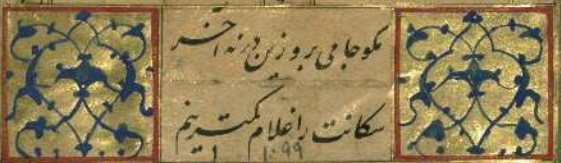 مکو جامی برو زین در نه آخر
سکانت را غلام کمترینم
۱۰۹۹